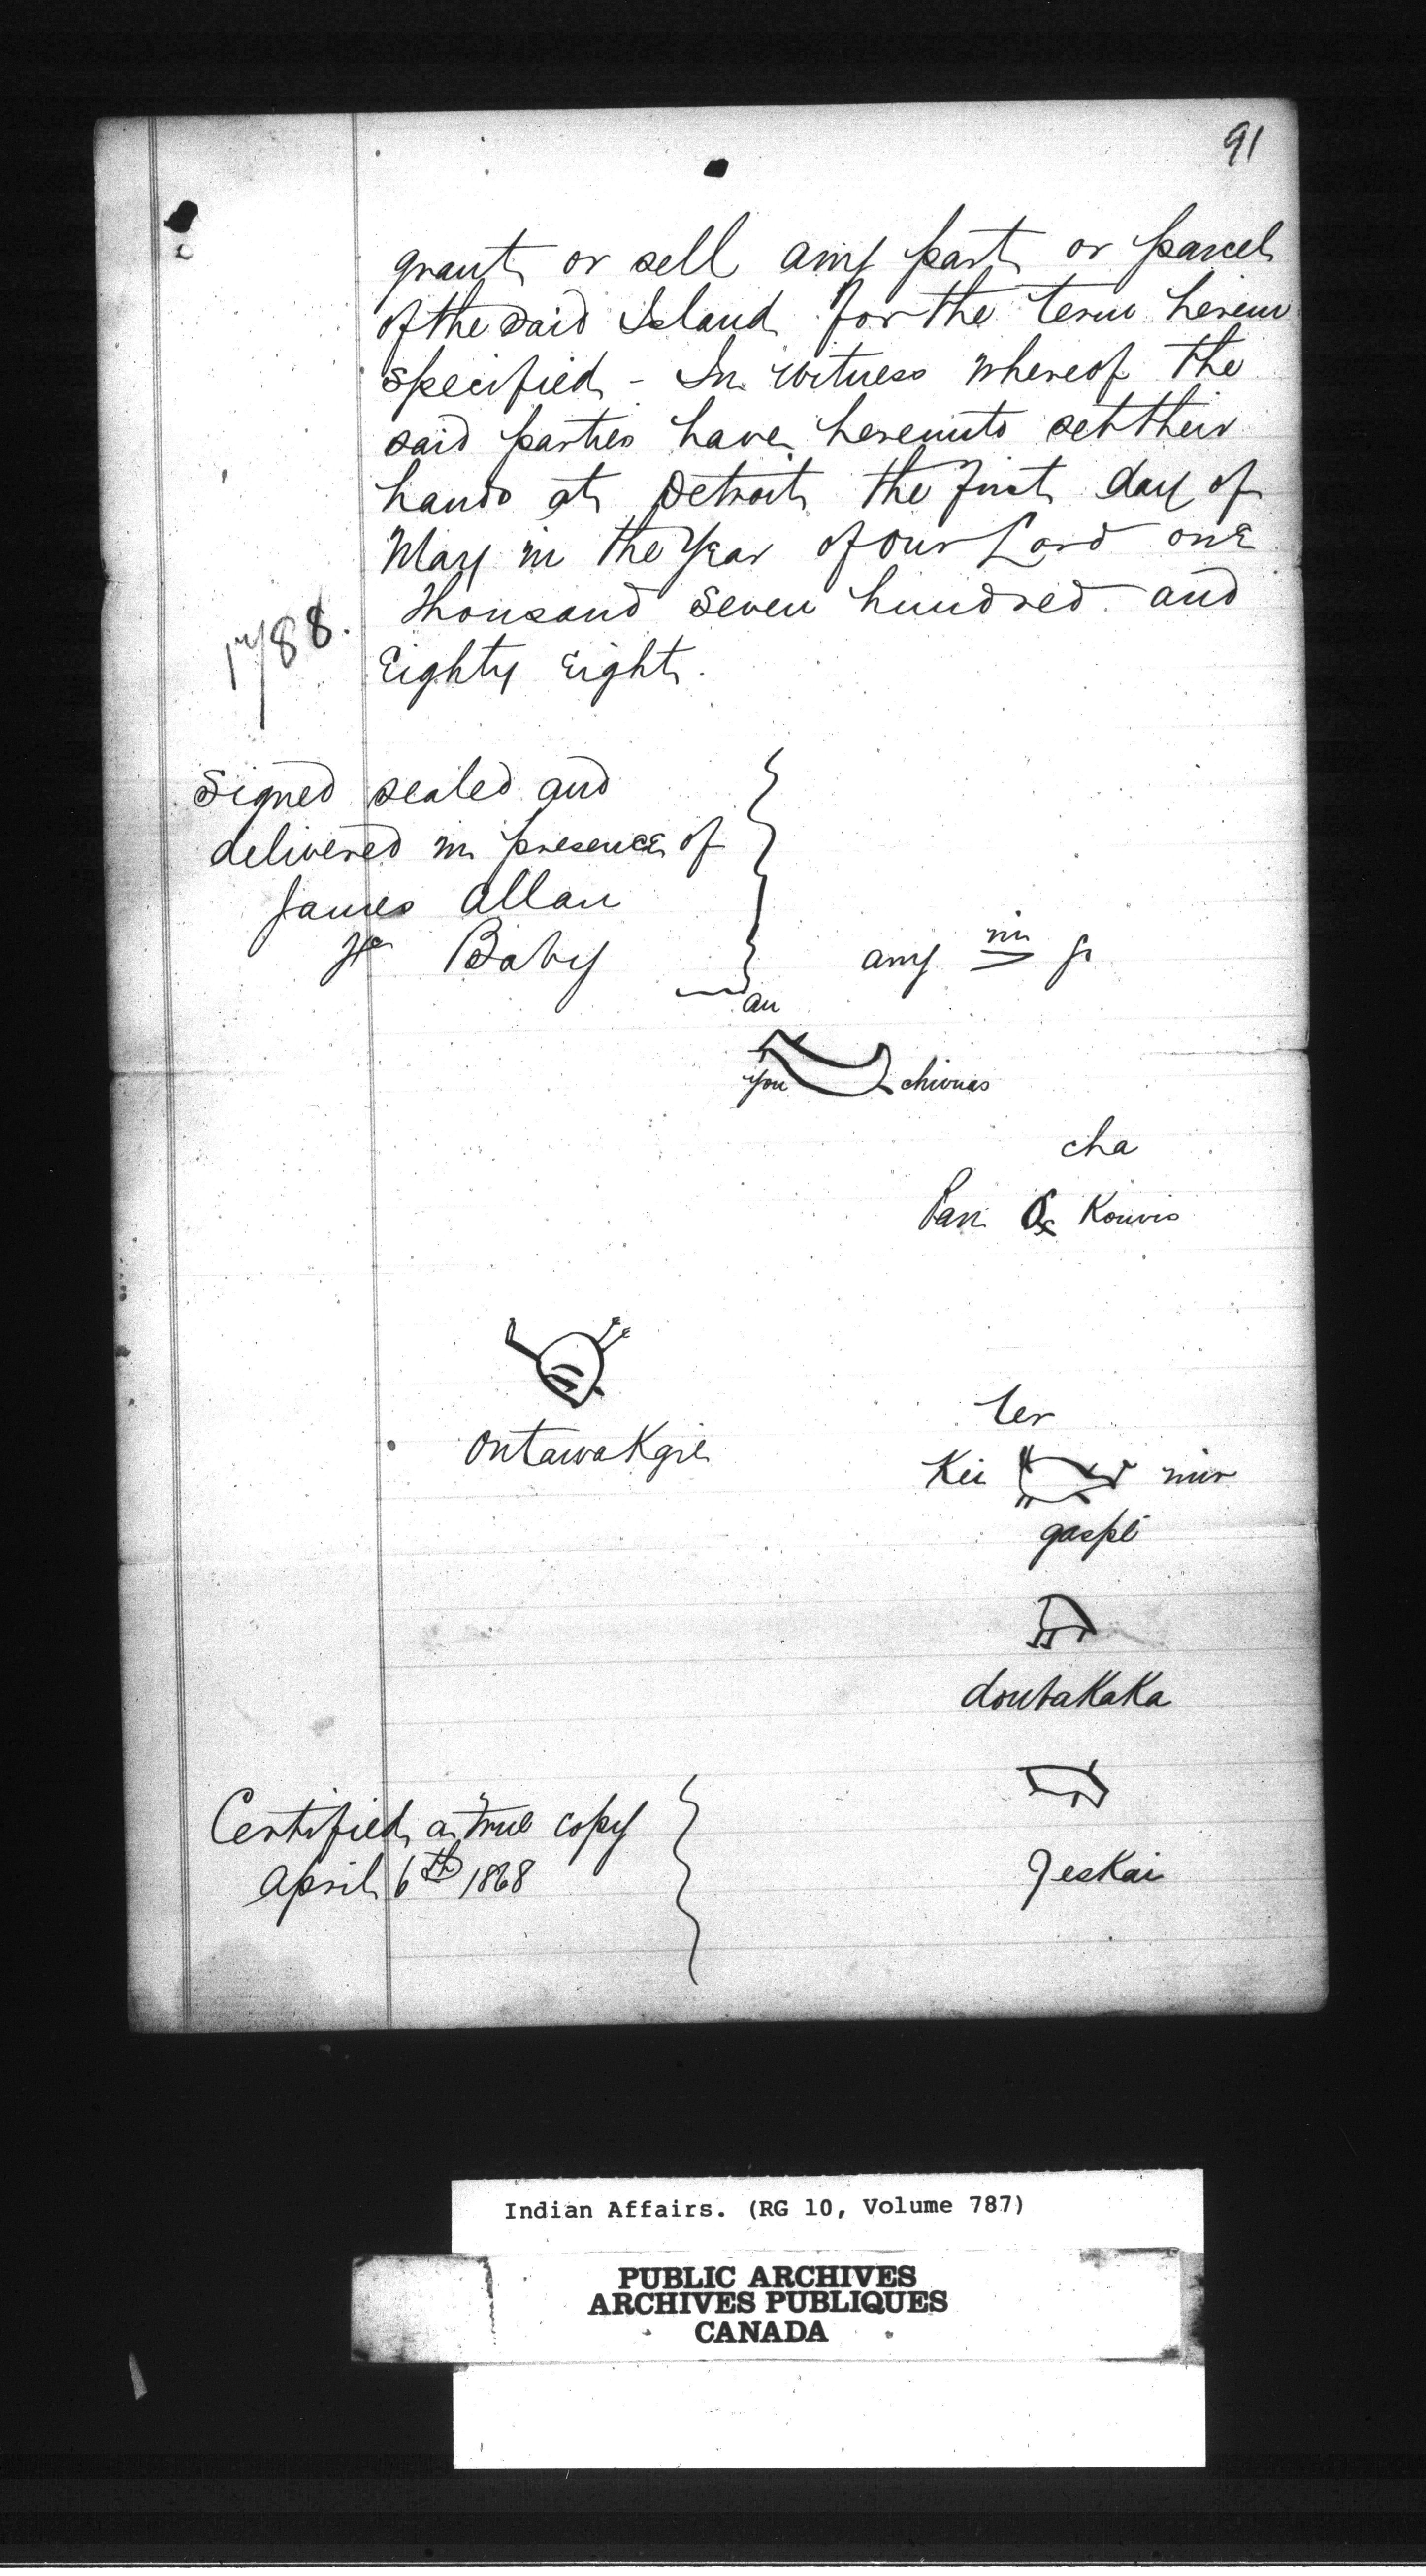 91
grant or sell any part or parcel
of the said Island for the term herein
specified - In witness whereof the
said parties have hereunto set their
hands at Detroit the first day of
May in the Year of our Lord one
thousand seven hundred and
Eighty Eight.
1788.
Signed sealed and
delivered in presence of
James Allan
Baby
any ni
au
you chivnas
cha
Pan Konvis
OntawaKgie
ter
Kei mir
gaspé
doutaKaKa
JesKai
Certified a true copy
April 6th 1868
Indian Affairs. (RG 10, Volume 787)
PUBLIC ARCHIVES
ARCHIVES PUBLIQUES
CANADA